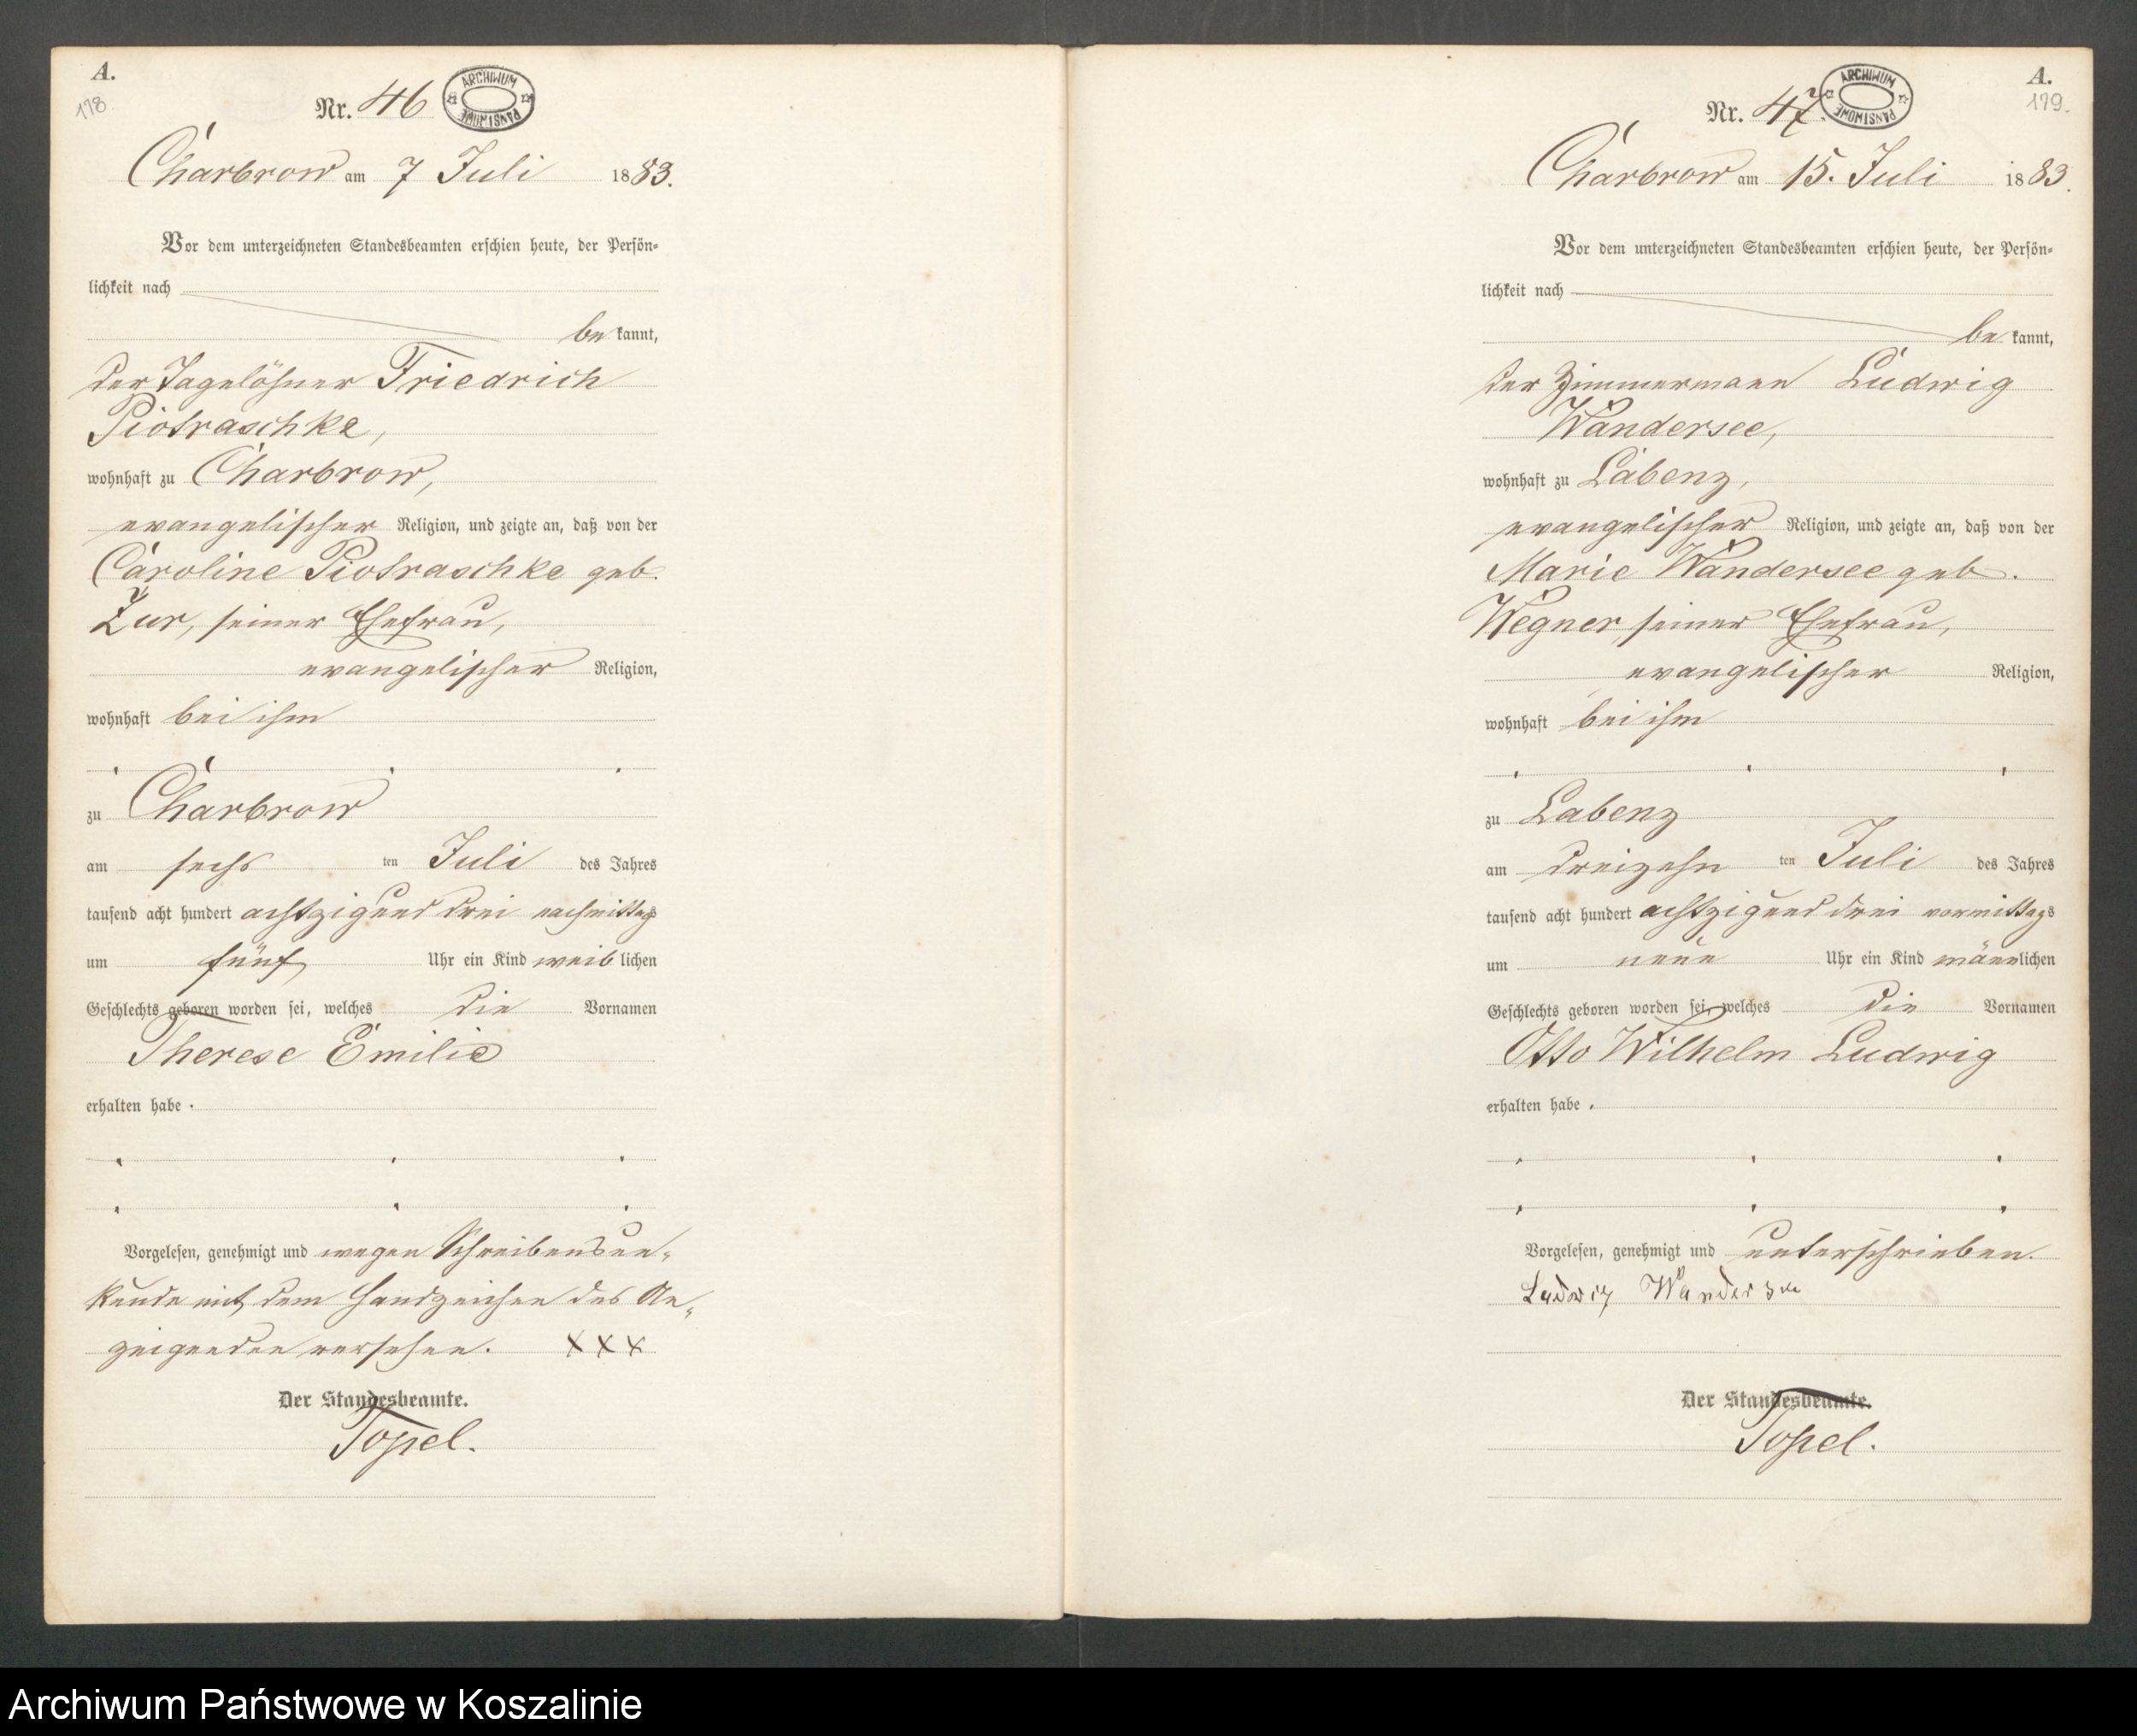 A.
178.
Nr. 46
ARCHIWUM PAŃSTWOWE
Charbrow am 7 Juli 1883.
Vor dem unterzeichneten Standesbeamten erschien heute, der Persön-
lichkeit nach
bekannt,
der Tagelöhner Friedrich
Piotraschke,
wohnhaft zu Charbrow,
evangelischer Religion, und zeigte an, daß von der
Caroline Piotraschke geb.
Zur, seiner Ehefrau,
evangelischer Religion,
wohnhaft bei ihm
zu Charbrow
am sechsten Juli des Jahres
tausend acht hundert achtzig und drei nachmittags
um fünf Uhr ein Kind weiblichen
Geschlechts geboren worden sei, welches die Vornamen
Therese Emilie
erhalten habe.
Vorgelesen, genehmigt und wegen Schreibensun-
kunde mit dem Handzeichen des An-
zeigenden versehen. XXX
Der Standesbeamte.
Topel.
A.
179.
Nr. 47.
ARCHIWUM PAŃSTWOWE
Charbrow am 15. Juli 1883.
Vor dem unterzeichneten Standesbeamten erschien heute, der Persön-
lichkeit nach
bekannt,
der Zimmermann Ludwig
Wandersee,
wohnhaft zu Labenz,
evangelischer Religion, und zeigte an, daß von der
Marie Wandersee geb.
Wegner seiner Ehefrau,
evangelischer Religion,
wohnhaft bei ihm
zu Labenz
am dreizehnten Juli des Jahres
tausend acht hundert achtzig und drei vormittags
um neun Uhr ein Kind männlichen
Geschlechts geboren worden sei, welches die Vornamen
Otto Wilhelm Ludwig
erhalten habe.
Vorgelesen, genehmigt und unterschrieben.
Ludwig Wandersee
Der Standesbeamte.
Topel.
Archiwum Państwowe w Koszalinie